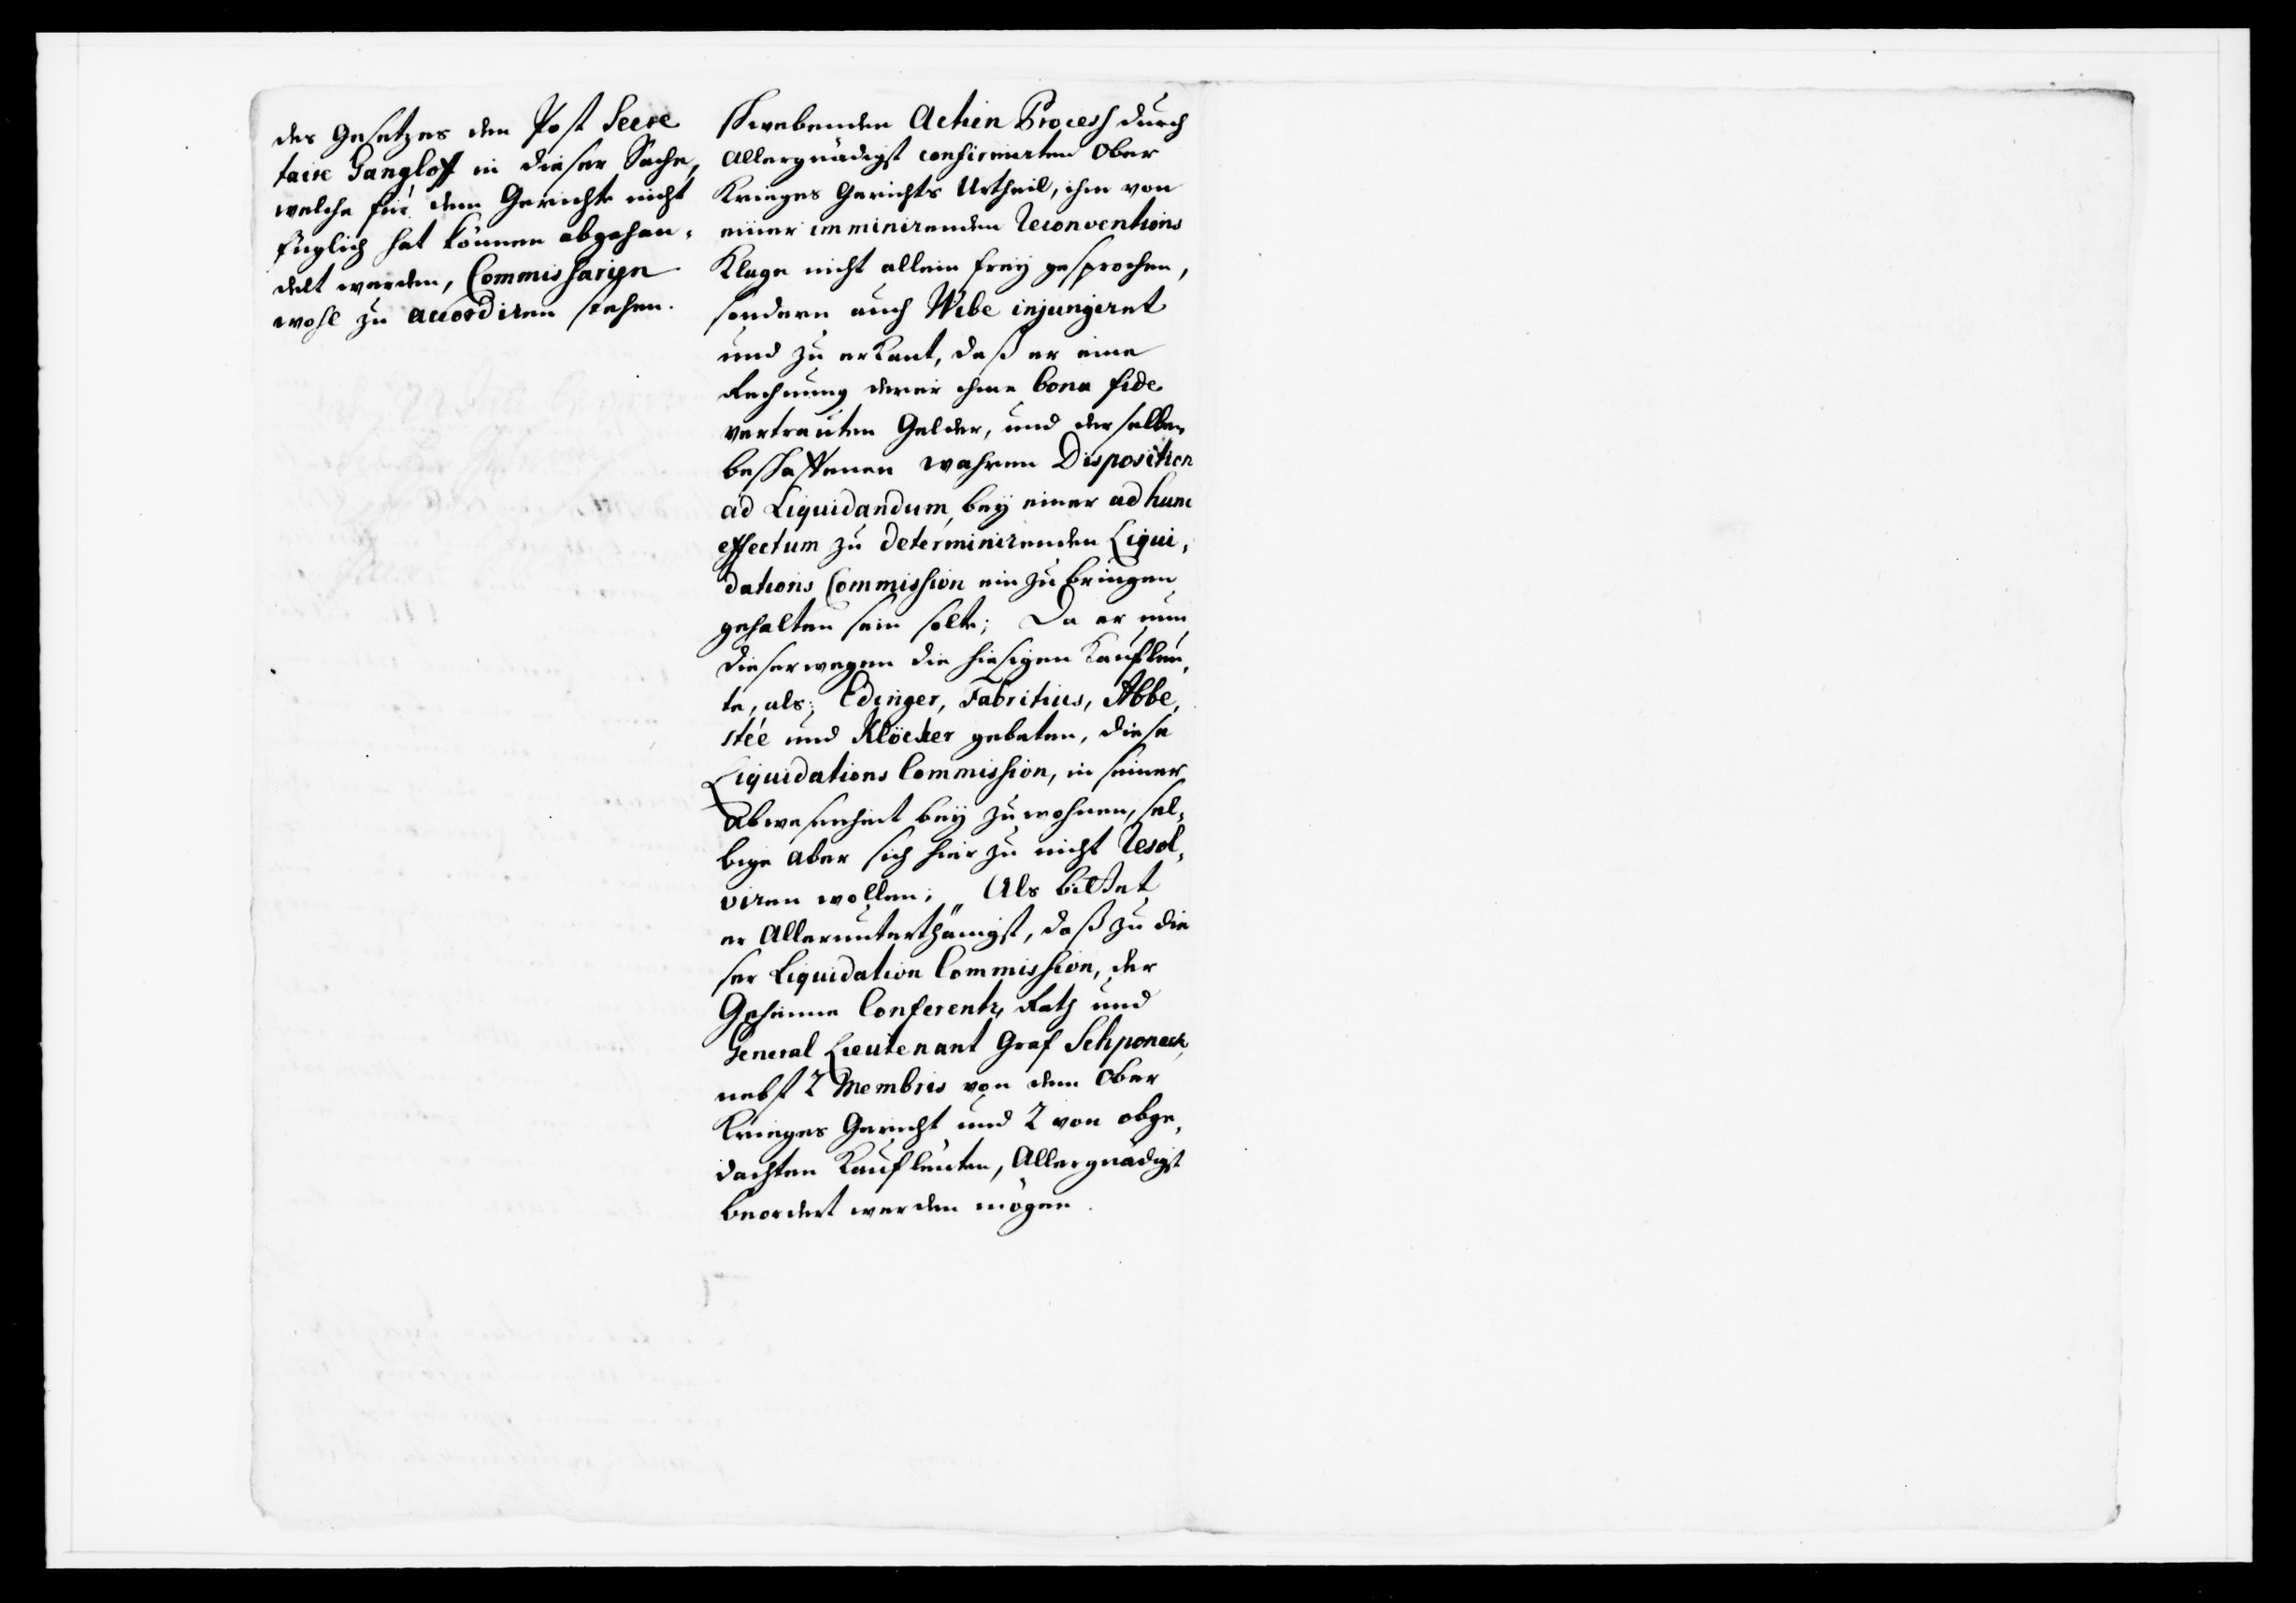 des Gesetzes den Post Secre
taire Gangloff in dieser Sache,
welche für dem Gerichte nicht
füglich hat können abgehan¬
delt werden, Commissarien
wohl zu accordiren stehen.
schwebenden Action Process durch
Allergnädigst confirmirten Ober
Krieges Gerichts Urtheil, ihm von
einer imminirenden Reconventions
Klage nicht allein frey gesprochen,
sondern auch Wibe injungiret
und zu erkant, daß er eine
Rechnung derer ihme bona fide
vertrauten Gelder, und derselben
beschaffenen wahren Disposition
ad Liquidandum, bey einer ad hunc
effectum zu determinirenden Liqui¬
dations Commission ein zu bringen
gehalten sein solte; Da er nun
dieserwegen die hiesigen Kaufleu¬
te, als; Edinger, Fabritius, Abbe¬
stée und Klöcker gebeten, diese
Liquidations Commission, in seiner
Abwesenheit bey zu wohnen, sel¬
bige aber sich hier zu nicht Resol¬
viren wollen; Als bittet
er Allerunterthänigst, daß zu die
ser Liquidation Commission, der
Geheime Conferentz Rath und
General Lieutenant Graf Schponeck,
nebst 2 Membris von dem Ober
Krieges Gericht und 2 von obge¬
dachten Kaufleuten, Allergnädigst
beordert werden mögen.